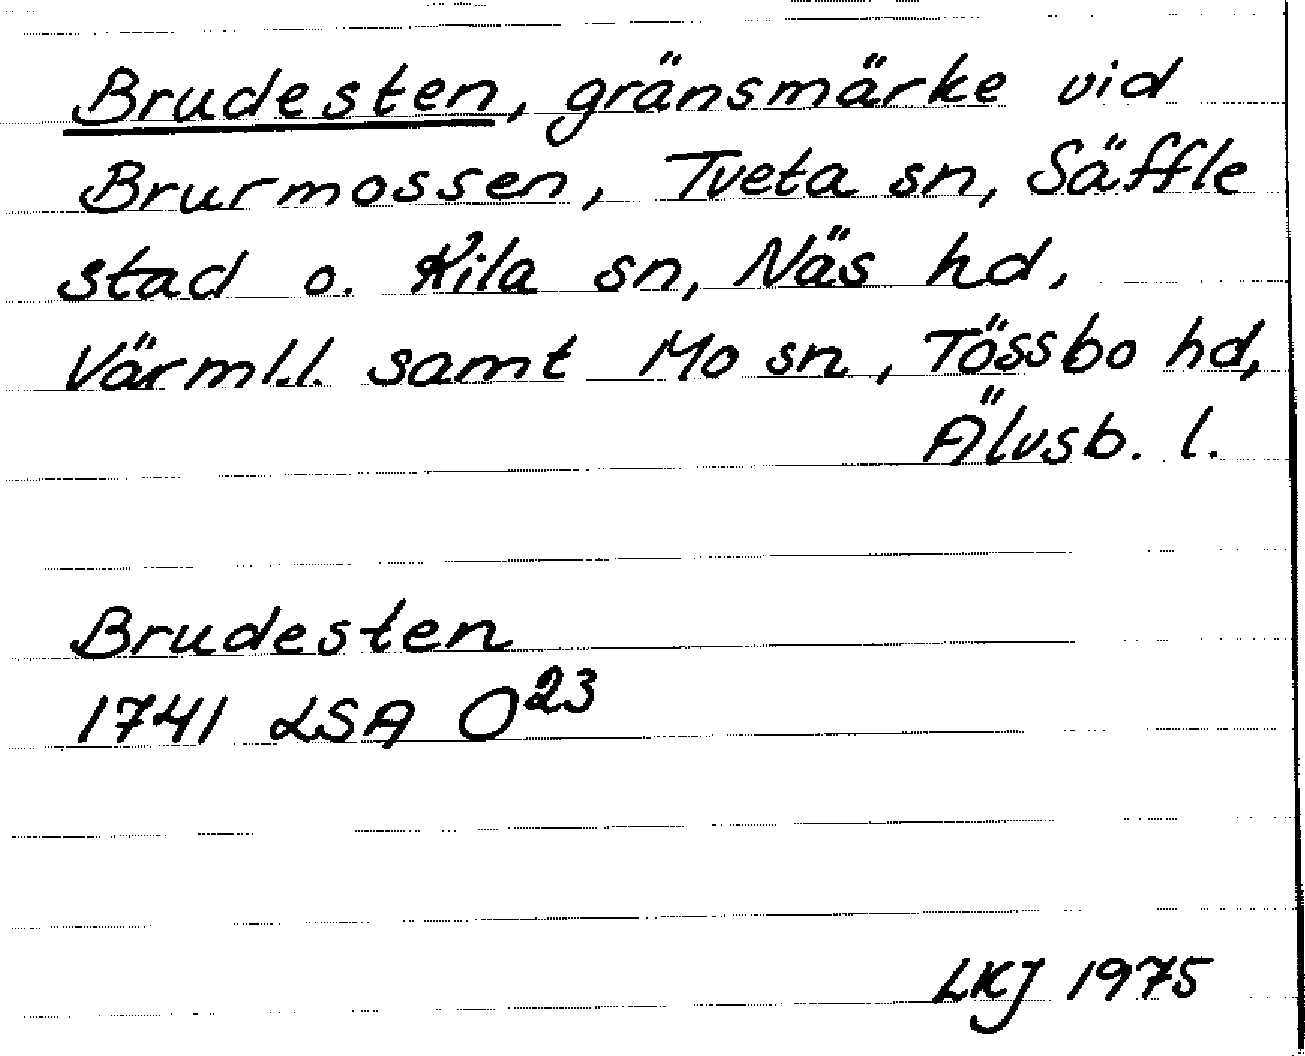 Brudesten, gränsmärke vid
Brurmossen, Tveta sn, Säffle
stad o. Kila sn, Näs hd,
Värml.l. samt Mo sn, Tössbo hd,
Älvsb. l.
Brudesten
1741 LSA O²³
LKJ 1975